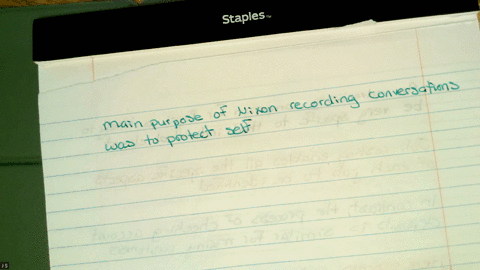 Staples
main purpose of Nixon recording conversations
was to protect self